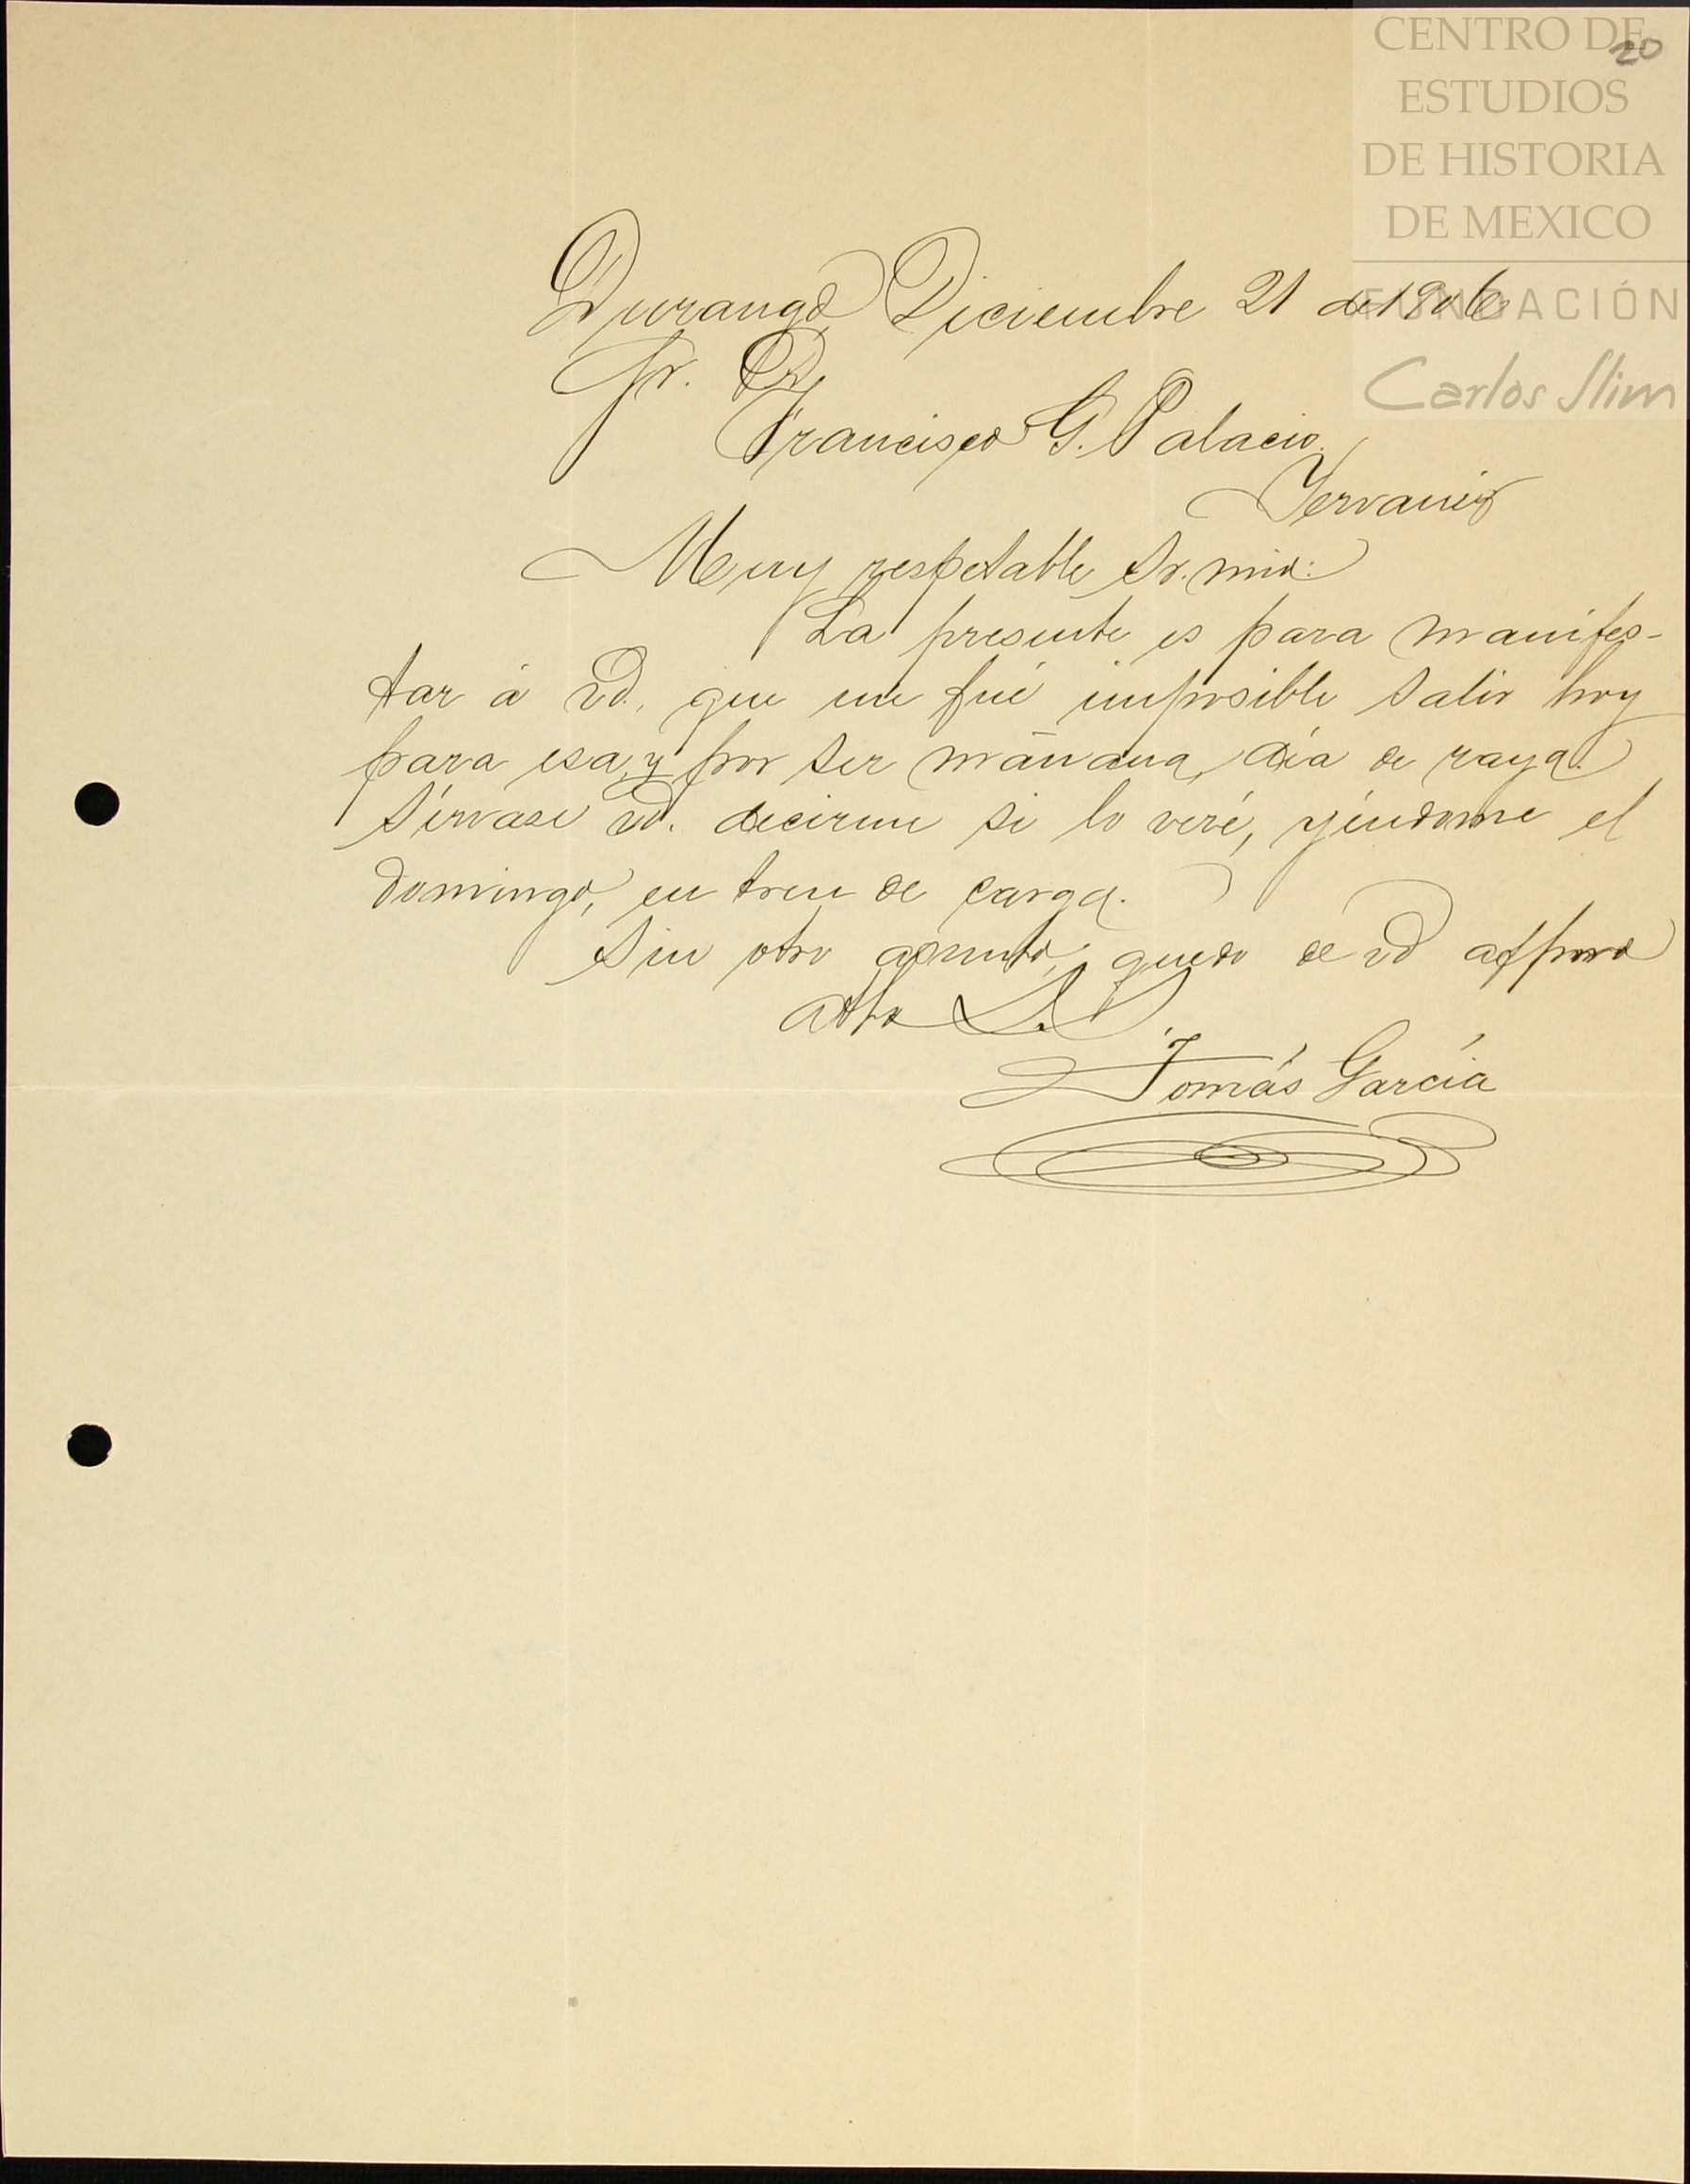 CENTRO DE
ESTUDIOS
DE HISTORIA
DE MEXICO
20
FUNDACIÓN
Carlos Slim
Durango, Diciembre 21 de 1906
Sr. Dn.
Francisco G. Palacio.
Yervanis
Muy respetable Sr. mio:
La presente es para manifes-
tar á Vd., que me fué imposible salir hoy
para esa, y por ser mañana, día de raya.
Sírvase Vd. decirme si lo veré, yéndome el
domingo, en tren de carga.
Sin otro asunto, quedo de Vd afmo
atto S.S.
Tomás García